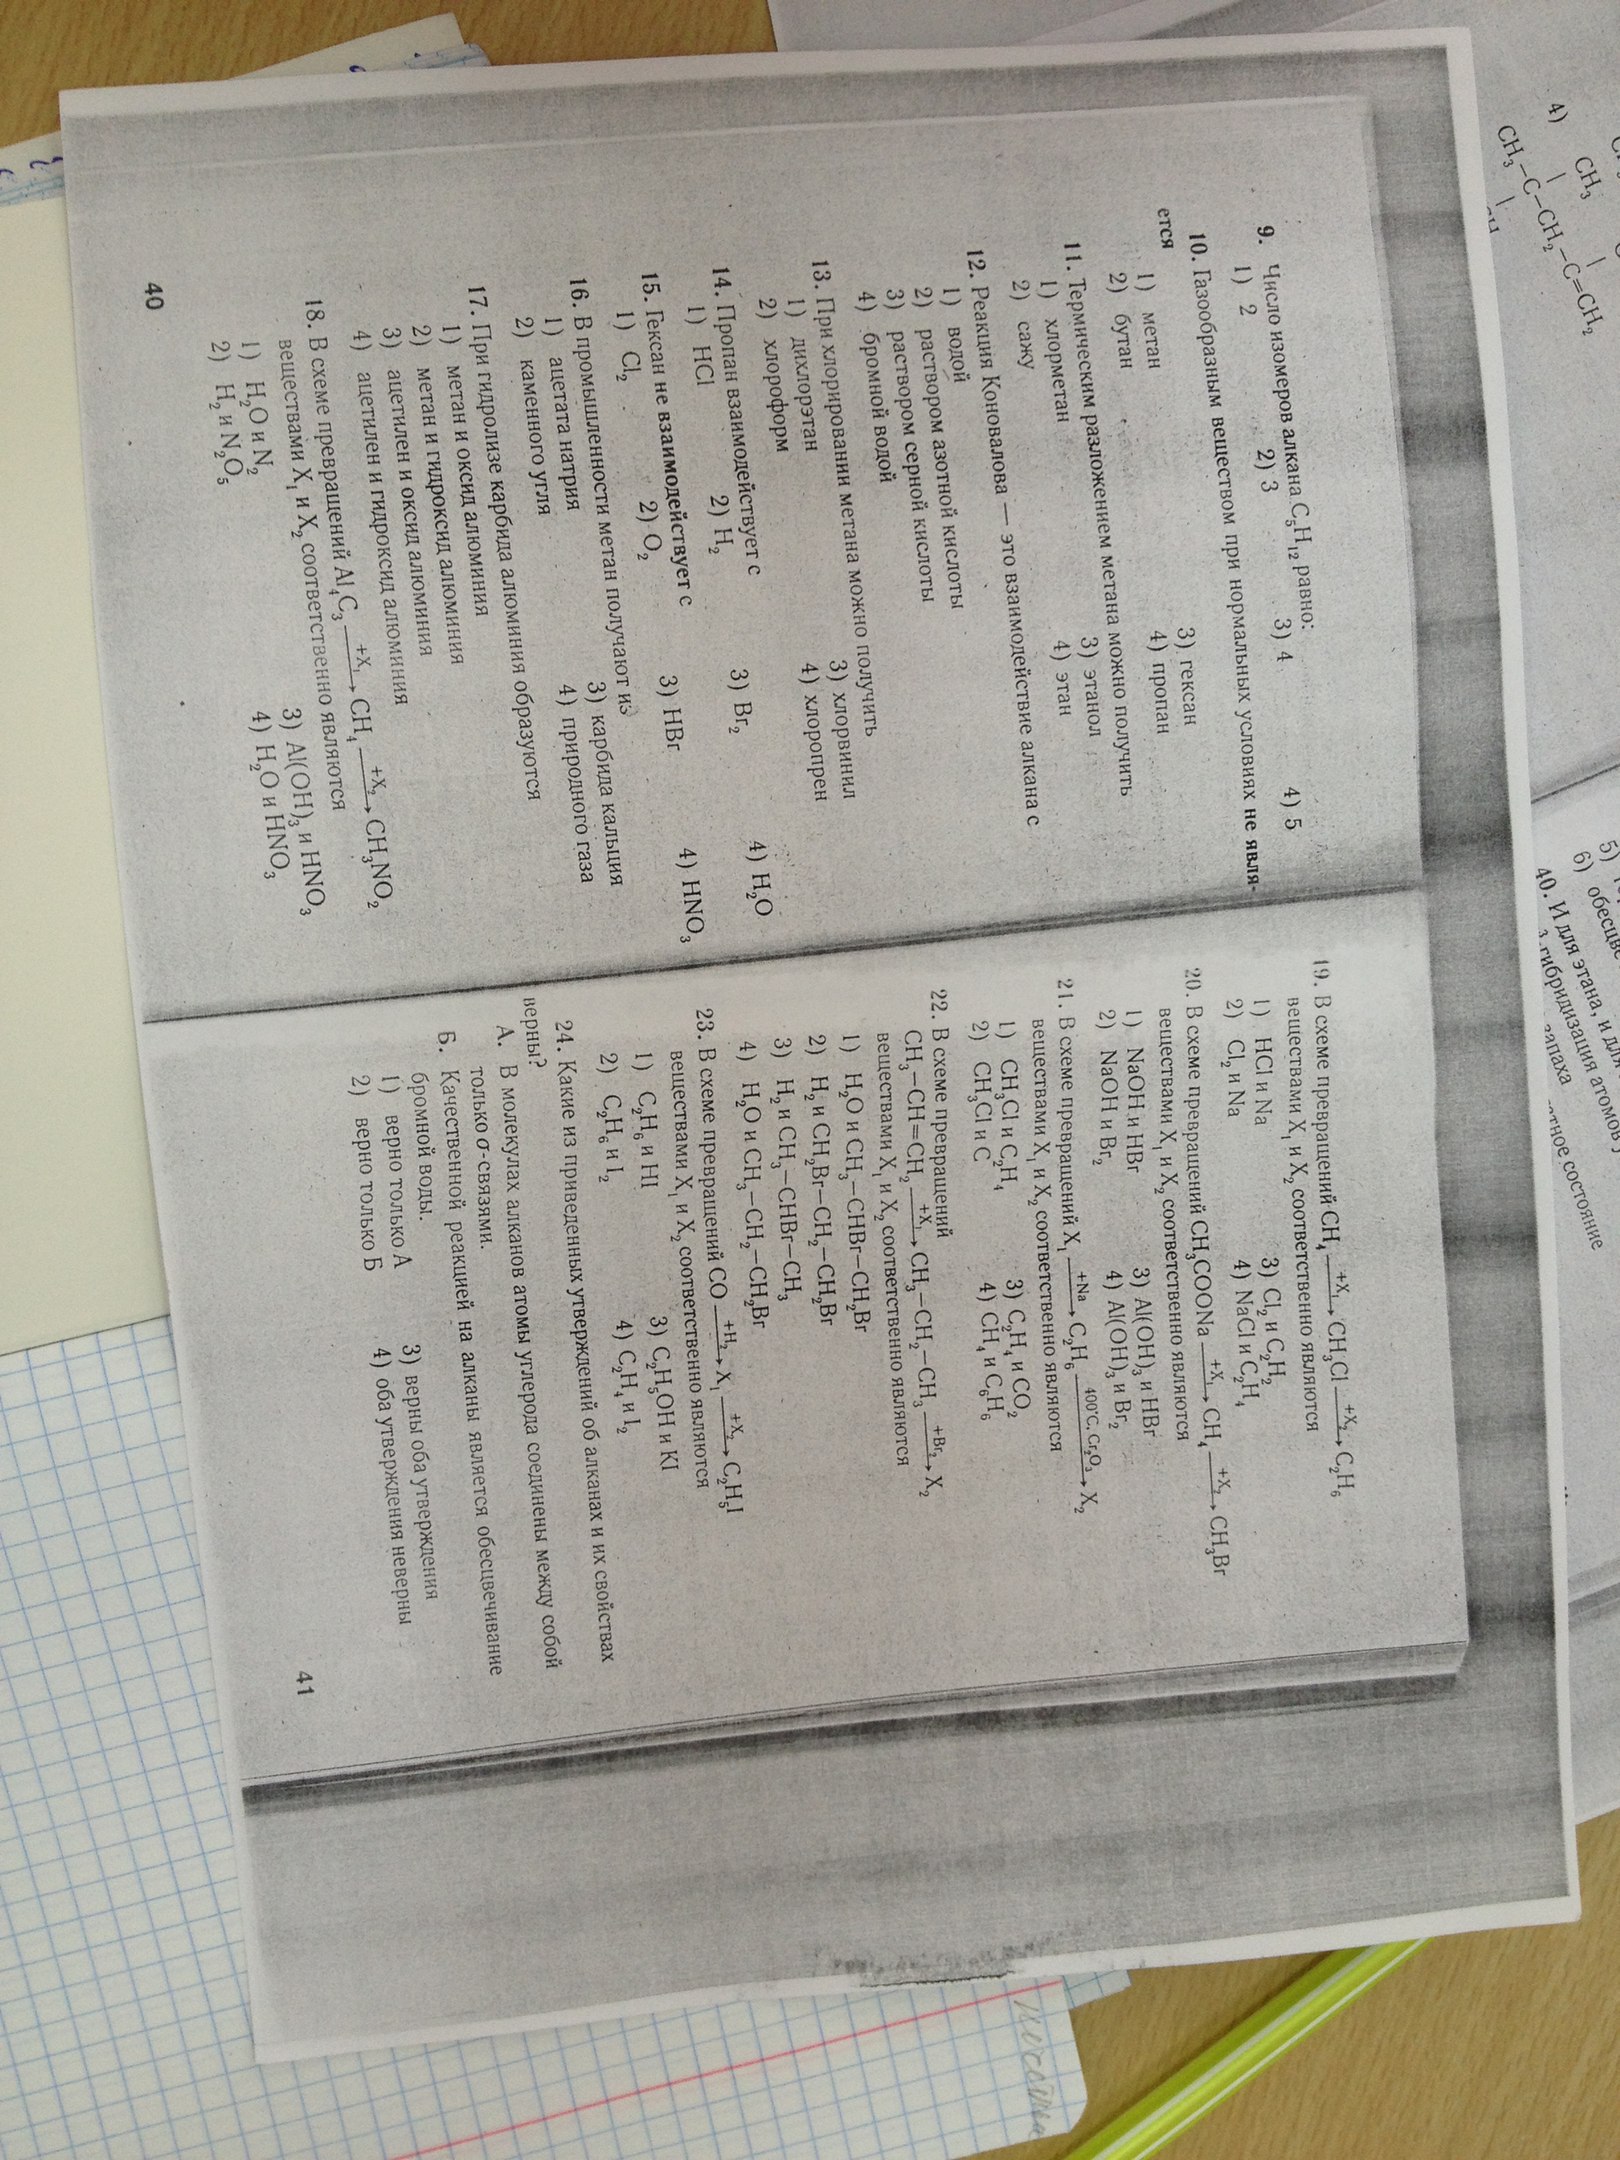 9. Число изомеров алкана C₅H₁₂ равно:
1) 2 2) 3 3) 4 4) 5
10. Газообразным веществом при нормальных условиях не явля-
ется
1) метан 3) гексан
2) бутан 4) пропан
11. Термическим разложением метана можно получить
1) хлорметан 3) этанол
2) сажу 4) этан
12. Реакция Коновалова — это взаимодействие алкана с
1) водой
2) раствором азотной кислоты
3) раствором серной кислоты
4) бромной водой
13. При хлорировании метана можно получить
1) дихлорэтан 3) хлорвинил
2) хлороформ 4) хлоропрен
14. Пропан взаимодействует с
1) HCl 2) H₂ 3) Br₂ 4) H₂O
15. Гексан не взаимодействует с
1) Cl₂ 2) O₂ 3) HBr 4) HNO₃
16. В промышленности метан получают из
1) ацетата натрия 3) карбида кальция
2) каменного угля 4) природного газа
17. При гидролизе карбида алюминия образуются
1) метан и оксид алюминия
2) метан и гидроксид алюминия
3) ацетилен и оксид алюминия
4) ацетилен и гидроксид алюминия
18. В схеме превращений Al₄C₃ +X₁→ CH₄ +X₂→ CH₃NO₂
веществами X₁ и X₂ соответственно являются
1) H₂O и N₂ 3) Al(OH)₃ и HNO₃
2) H₂ и N₂O₅ 4) H₂O и HNO₃
40
19. В схеме превращений CH₄ +X₁→ CH₃Cl +X₂→ C₂H₆
веществами X₁ и X₂ соответственно являются
1) HCl и Na 3) Cl₂ и C₂H₂
2) Cl₂ и Na 4) NaCl и C₂H₄
20. В схеме превращений CH₃COONa +X₁→ CH₄ +X₂→ CH₃Br
веществами X₁ и X₂ соответственно являются
1) NaOH и HBr 3) Al(OH)₃ и HBr
2) NaOH и Br₂ 4) Al(OH)₃ и Br₂
21. В схеме превращений X₁ +Na→ C₂H₆ 400°C, Cr₂O₃→ X₂
веществами X₁ и X₂ соответственно являются
1) CH₃Cl и C₂H₄ 3) C₂H₄ и CO₂
2) CH₃Cl и C 4) CH₄ и C₆H₆
22. В схеме превращений
CH₃–CH=CH₂ +X₁→ CH₃–CH₂–CH₃ +Br₂→ X₂
веществами X₁ и X₂ соответственно являются
1) H₂O и CH₃–CHBr–CH₂Br
2) H₂ и CH₂Br–CH₂–CH₂Br
3) H₂ и CH₃–CHBr–CH₃
4) H₂O и CH₃–CH₂–CH₂Br
23. В схеме превращений CO +H₂→ X₁ +X₂→ C₂H₅I
веществами X₁ и X₂ соответственно являются
1) C₂H₆ и HI 3) C₂H₅OH и KI
2) C₂H₆ и I₂ 4) C₂H₄ и I₂
24. Какие из приведенных утверждений об алканах и их свойствах
верны?
А. В молекулах алканов атомы углерода соединены между собой
только σ-связями.
Б. Качественной реакцией на алканы является обесцвечивание
бромной воды.
1) верно только А 3) верны оба утверждения
2) верно только Б 4) оба утверждения неверны
41
4) CH₃
CH₃–C–CH₂–C=CH₂
5)
6) обесцве
40. И для этана, и для
гибридизация атомов
запаха
состояние